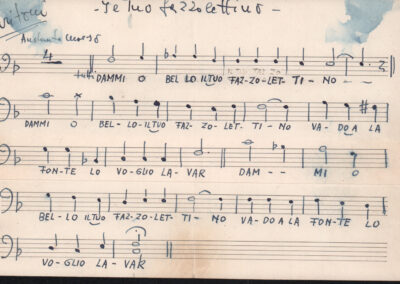 - Te mo fazzolettino -
4
tutti DAMMI O BEL LO IL TUO FAZ-ZO-LET-TI-NO - -
DAMMI O BEL-LO IL TUO FAZ-ZO-LET-TI-NO VA-DO A LA
FON-TE LO VO-GLIO LA-VAR DAM-- MI O
BEL-LO IL TUO FAZ-ZO-LET-TI-NO VA-DO A LA FON-TE LO
VO-GLIO LA-VAR